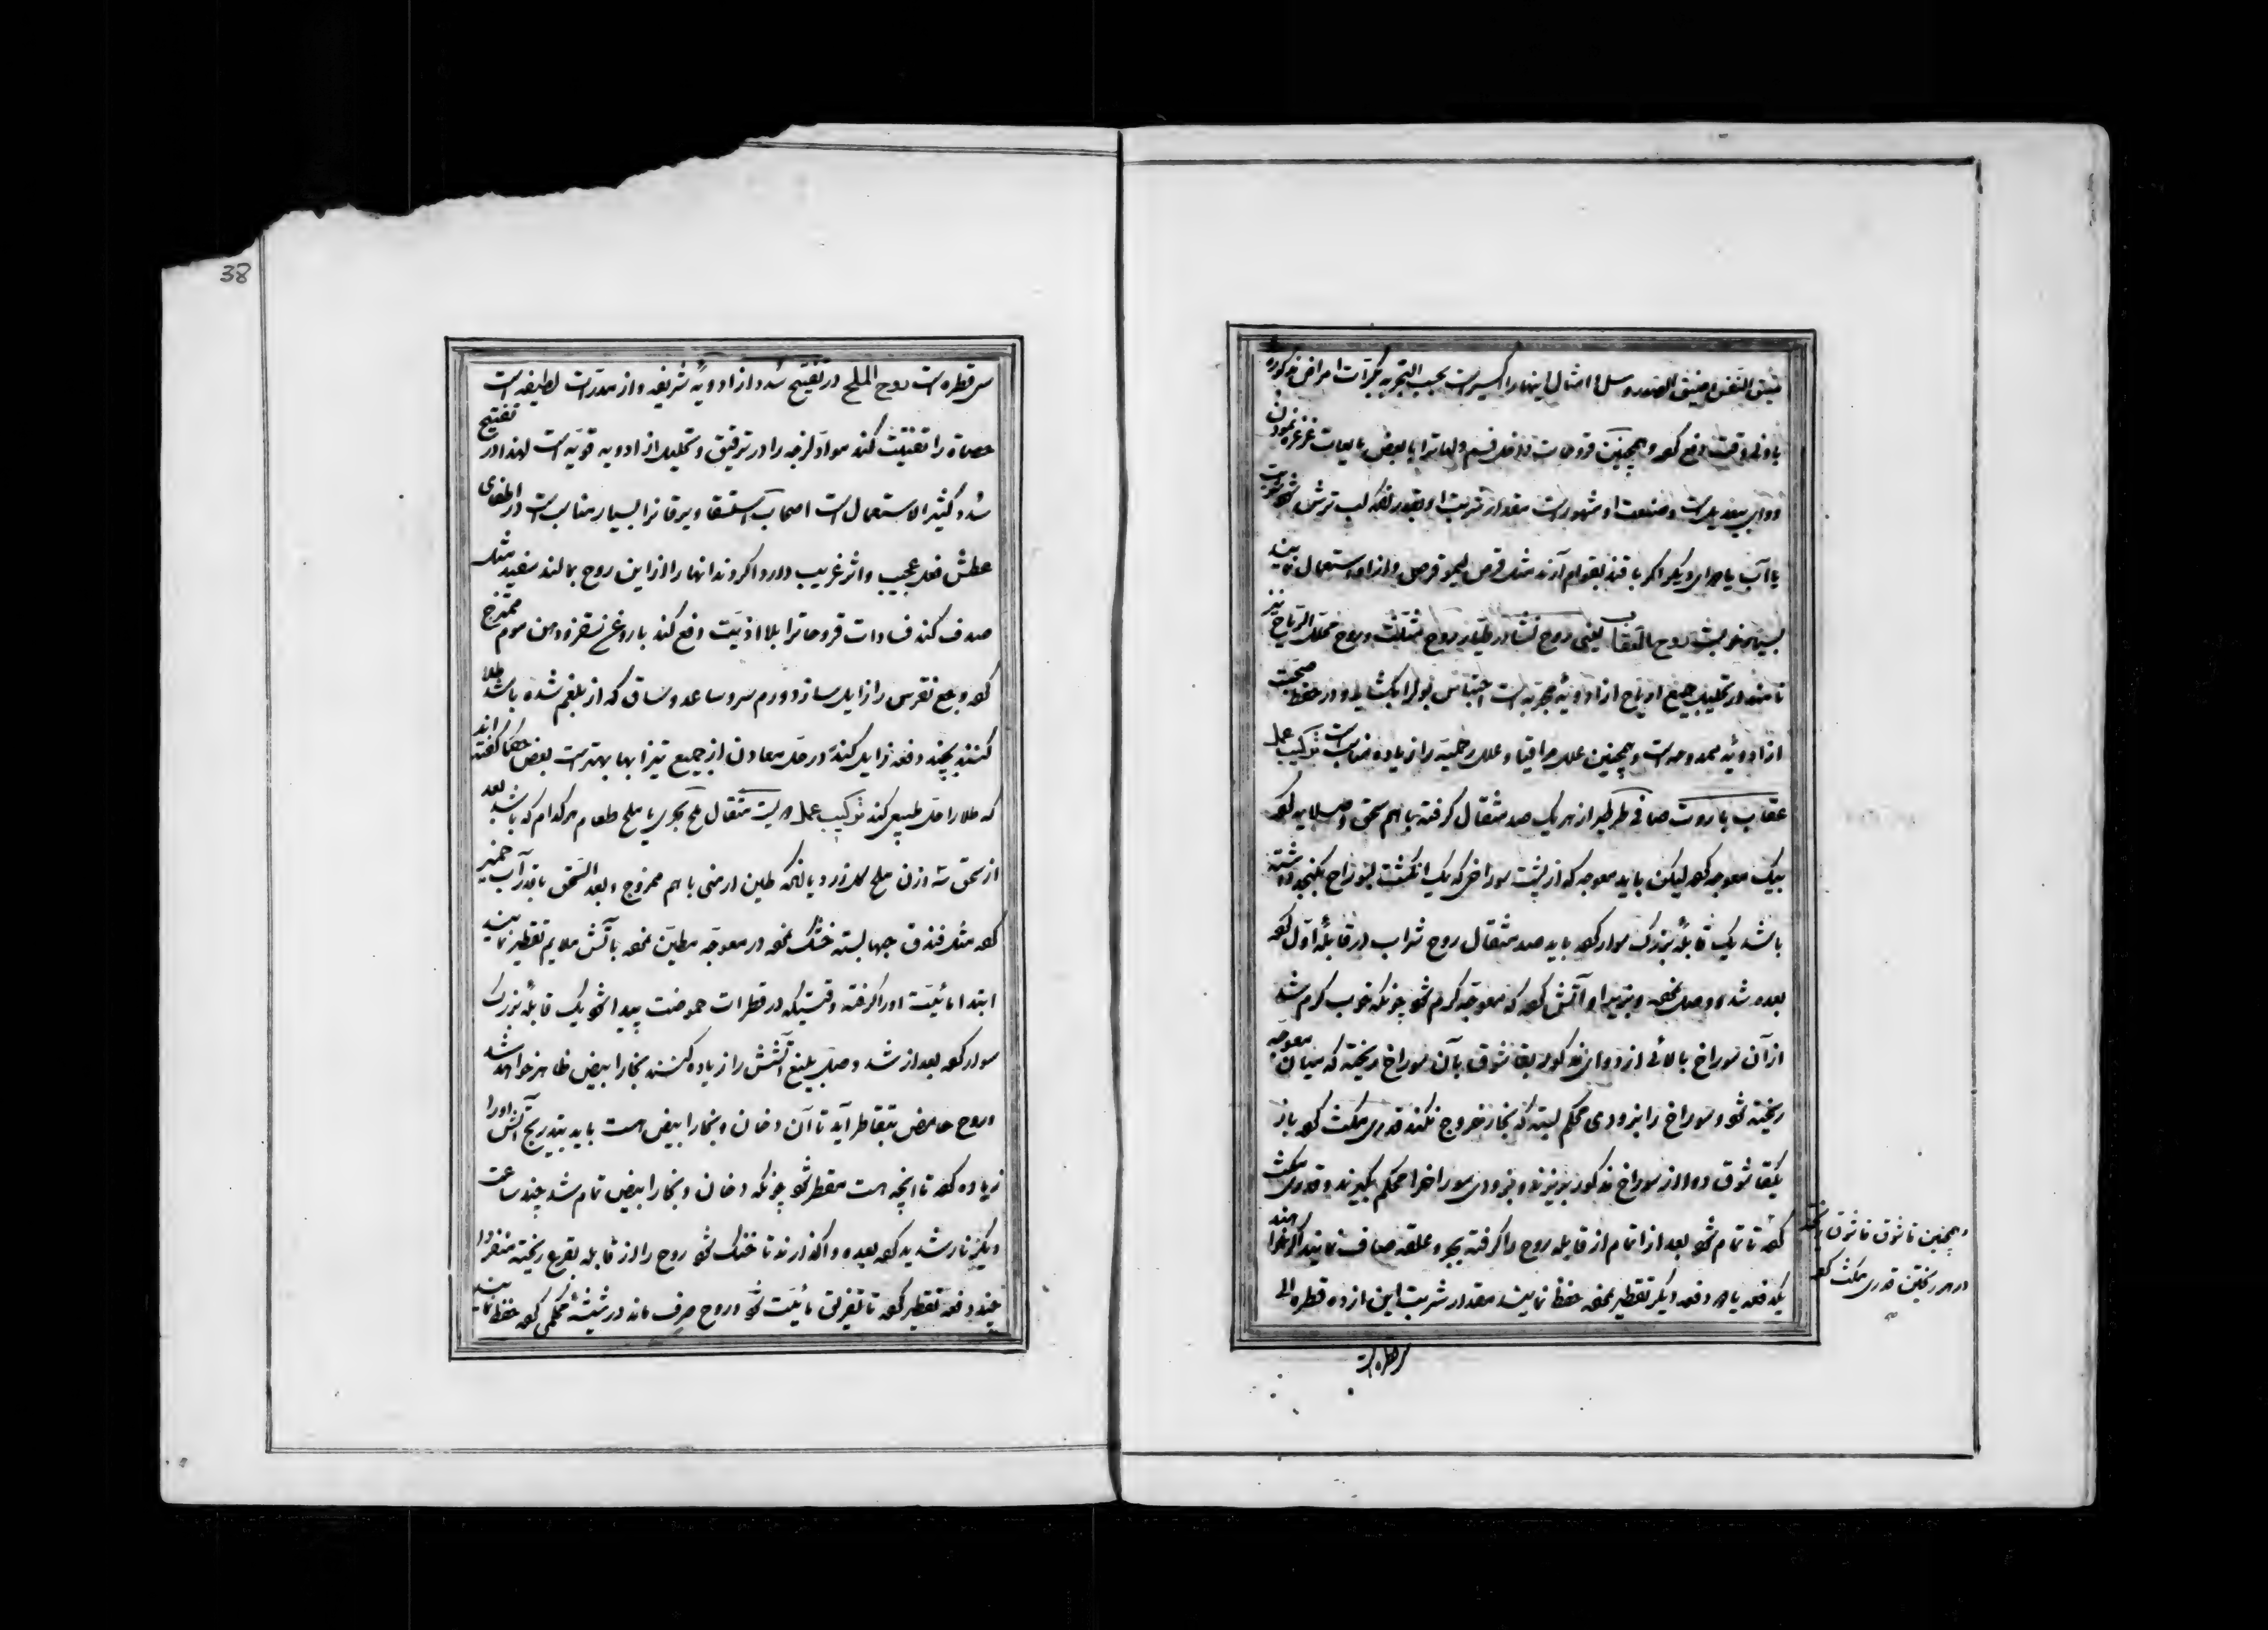 ضیق النفس و ضیق الصدر و سل و امثال اینها را اکسیر است بحسب التجربه بکرّات امراض مذکوره
باونی وقت دفع کند و همچنین قروحات داخل فم و لهاترا با بعض مایعات غرغره نمودن
دوای بیعدیل است و صنعت او مشهور است مقدار شربت او بقدر آنکه لب ترش شود شربت
با آب یا دوای دیگر اگر با قند بقوام آرند مثل قرص لیمو قرص و از او استعمال نمایند
روح العقاب یعنی روح نشادر طیار روح مثلّث و روح محلل الریاح نیز
نامند در تحلیل جمیع اریاح از ادویهٔ مجربه است احتباس بول را بکشاید و در حفظ صحت
از ادویهٔ ممدوحه است و همچنین علل مراقیا و علل رحمیّه را زیاده مناسبت ترکیب عمل
عقاب باروت صافی طرطیر از هر یک صد مثقال گرفته با هم سحق و صلایه کند
بیک معوجه کند لیکن باید معوجه که از پشت سوراخی که یک انگشت بسوراخ بکنجد داشته
باشد یک قابلهٔ بزرک سوار کند باید صد مثقال روح شراب در قابلهٔ اول کند
بعده شد و وصل نموده و بزیر او آتش کند که معوجه کرم شود چونکه خوب کرم شد
از آن سوراخ بالائی از دوای مذکور یقاشوق بآن سوراخ ریخته که میان معوجه
ریخته شود و سوراخ را بزودی محکم بسته که بخار خروج نکند قدری مکث کند باز
یکقاشوق دوا از سوراخ مذکور بریزند و بزودی سوراخرا محکم بگیرند و قدری مکث
کند تا تمام شود بعد از اتمام از قابله روح را گرفته بجر و علقه صاف نمایند اگر خواهند
یکدفعه یا دو دفعه دیگر تقطیر نموده حفظ نمایند مقدار شربت این از ده قطره الی
و همچنین قاشوق قاشوق ریخته
در هر ریختن قدری مکث کند
سی قطره است
38
سی قطره است روح الملح در تفتیح سدد از ادویهٔ شریفه و از مدرّات لطیفه است
حصاة را تفتیت کند مواد لزجه را در ترقیق و تحلیل از ادویه قویّه است لهذا در تفتیح
سدد کثیر الاستعمال است اصحاب استسقا و یرقانرا بسیار مناسبست در اطفای
عطش فعل عجیب و اثر غریب دارد اکر دندانها را از این روح بمالند سفید مثل
صدف کند فسادات قروحاترا بلا اذیّت دفع کند با روغن تقره و دهن موم ممتزج
کند وجع نقرس را زایل سازد ورم سر و ساعد و ساق که از بلغم شده باشد طلا
کنند بچند دفعه زایل کند در حل معادن از جمیع تیزابها بهتر است بعض حکما گفته‌اند
که طلا را حل طبیعی کند ترکیب عمل دویست مثقال ملح بحری یا ملح طعام هر کدام که باشد بعد
از سحق سه وزن ملح گل زرد یا آنکه طین ارمنی با هم ممزوج و بعد السحق باندک آب خمیر
کند مثل فندق جبها بسته خشک نموده در معوجه مطیّن نموده باتش ملایم تقطیر نمایند
ابتدا مائیّت او را گرفته وقتیکه در قطرات حموضت پیدا شود یک قابلهٔ بزرک
سوار کند بعد از شد وصل بلیغ آتشش را زیاده کنند بخار ابیض ظاهر خواهد شد
و روح حامض بتقاطر آید تا آن دخان و بخار ابیض هست باید بتدریج آتش او را
زیاده کند تا آنچه هست مقطر شود چونکه دخان و بخار ابیض تمام شد چند ساعت
دیگر نار شدید کند بعده واگذارند تا خنک شود روح را از قابله بقرع ریخته منفردا
چند دفعه تقطیر کند تا تفریق مائیّت شود و روح صرف ماند در شیشهٔ محکمی کند حفظ نمایند